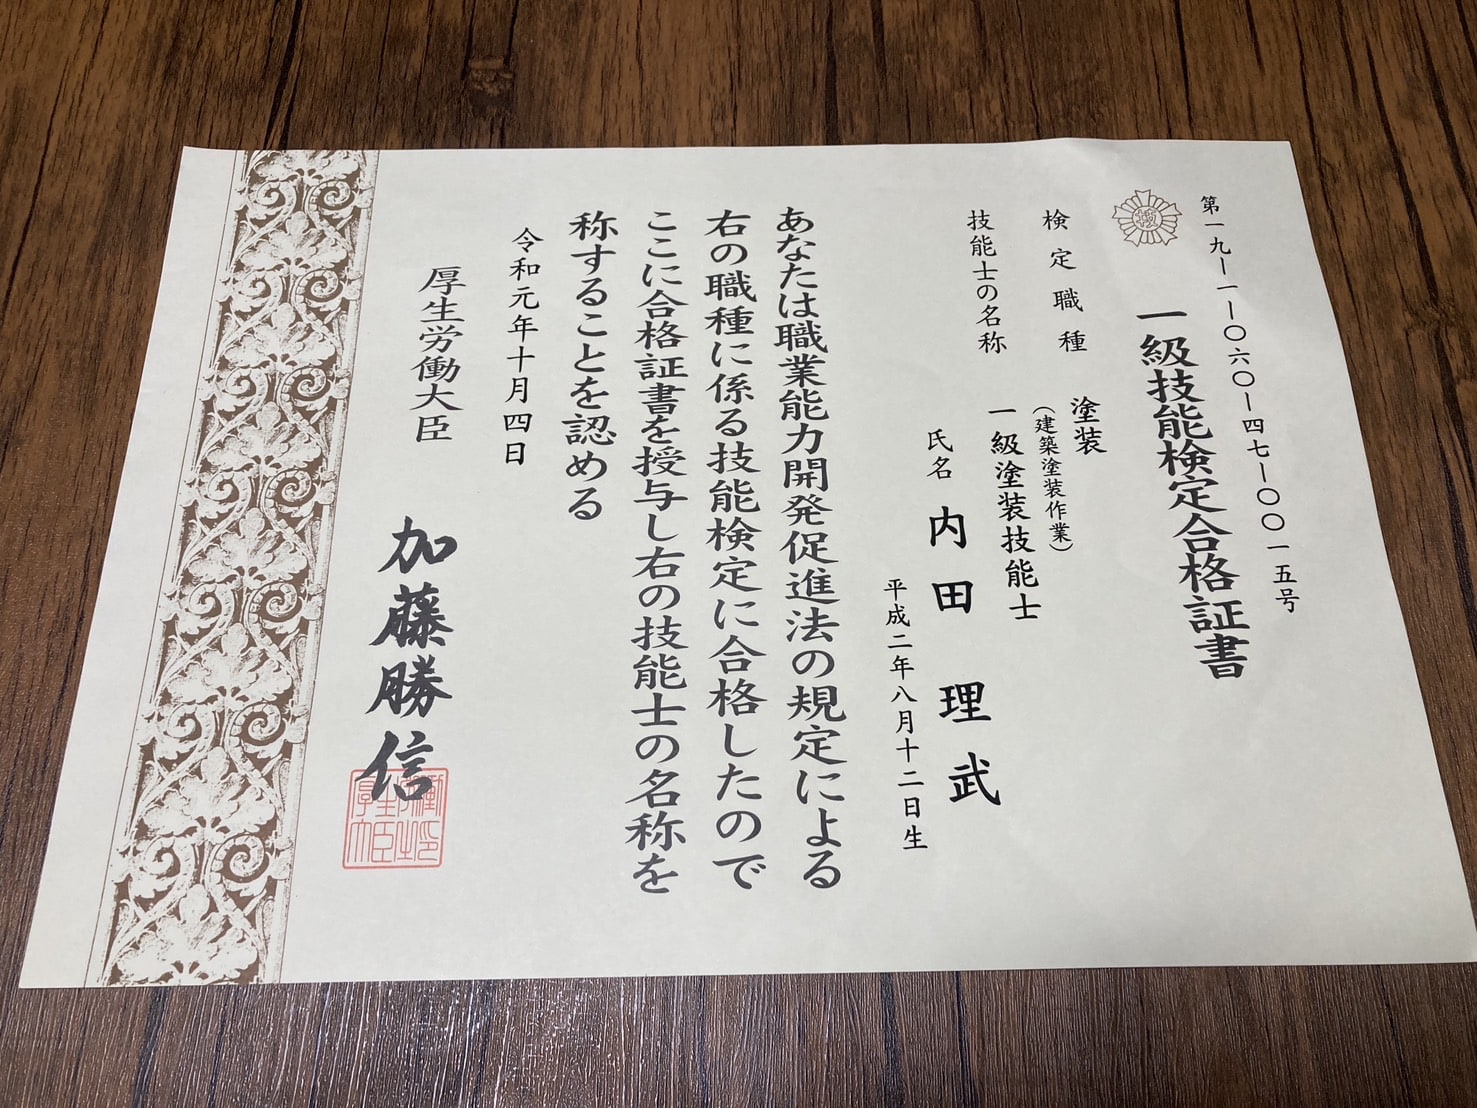 第一九ー一ー〇六〇ー四七ー〇〇一五号
一級技能検定合格証書
検定職種
塗装
（建築塗装作業）
技能士の名称
一級塗装技能士
氏名 内田 理武
平成二年八月十二日生
あなたは職業能力開発促進法の規定による
右の職種に係る技能検定に合格したので
ここに合格証書を授与し右の技能士の名称を
称することを認める
令和元年十月四日
厚生労働大臣
加藤勝信